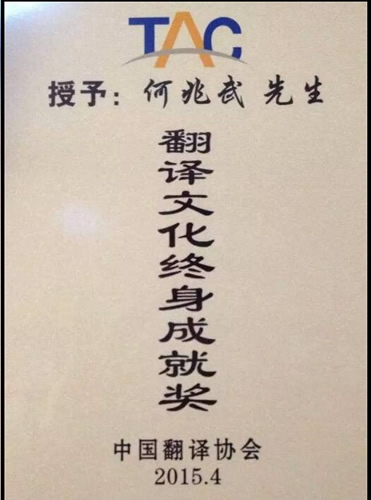 TAC
授予：何兆武 先生
翻译文化终身成就奖
中国翻译协会
2015.4